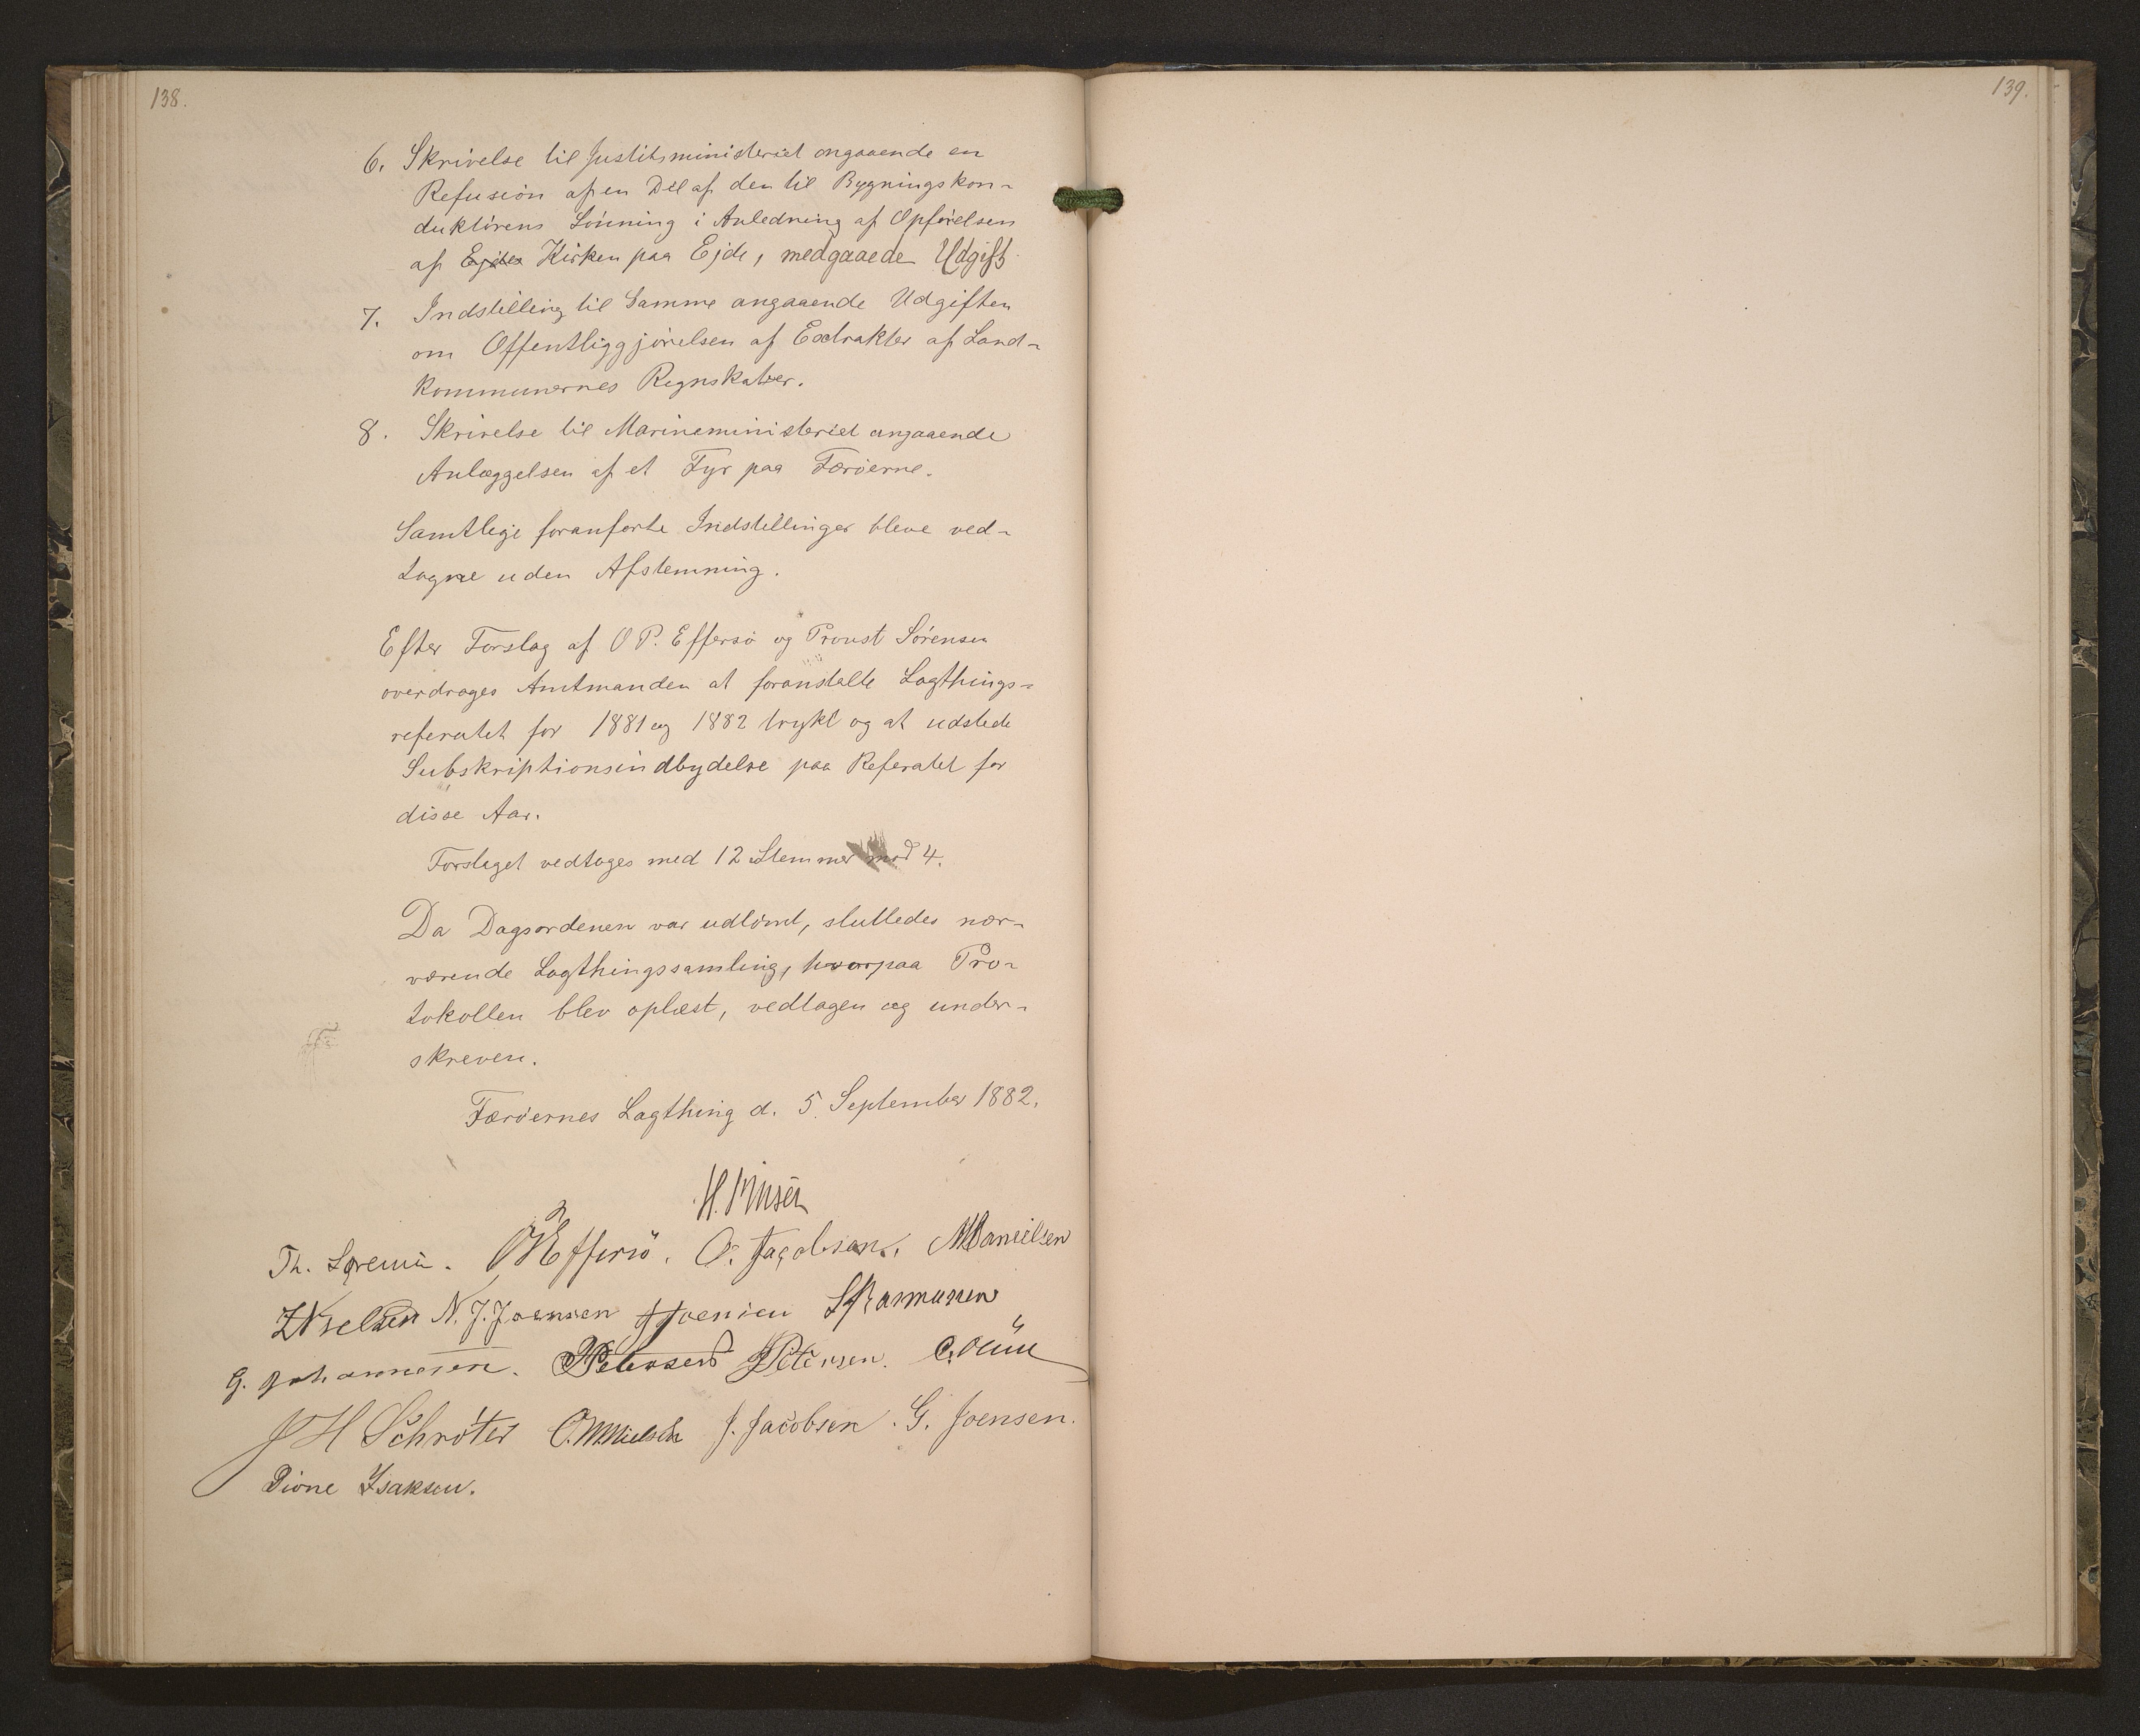 138.
139.
6. Skrivelse til Justitsministeriet angaaende en
Refusion af en Del af den til Bygningskon-
duktörens Lönning i Anledning af Opförelsen
af Ejdes Kirken paa Ejde, medgaaede Udgift
7. Indstilling til Samme angaaende Udgiften
om Offentliggjörelsen af Extrakter af Land-
kommunernes Regnskaber.
8. Skrivelse til Marineministeriet angaaende
Anlæggelsen af et Fyr paa Færöerne.
Samtlige foranförte Indstillinger bleve ved-
tagne uden Afstemning.
Efter Forslag af O P. Effersö og Provst Sörensen
overdroges Amtmanden at foranstalte Lagthings-
referatet for 1881 og 1882 trykt og at udstede
Subskriptionsindbydelse paa Referatet for
disse Aar.
Forslaget vedtoges med 12 Stemmer mod 4.
Da Dagsordenen var udtömt, sluttedes nær-
værende Lagthingssamling, hvorpaa Pro-
tokollen blev oplæst, vedtagen og under-
skreven.
Færöernes Lagthing d. 5. September 1882.
H.
Th. Sørensen. OPEffersö. O. Jacobsen. MDanielsen
ZNielsen N. J. Joensen JJoensen SRasmussen
G. Johannesen. Petersen Petersen.
JH Schröter O. Nielsen J. Jacobsen. G. Joensen.
Dione Isaksen.